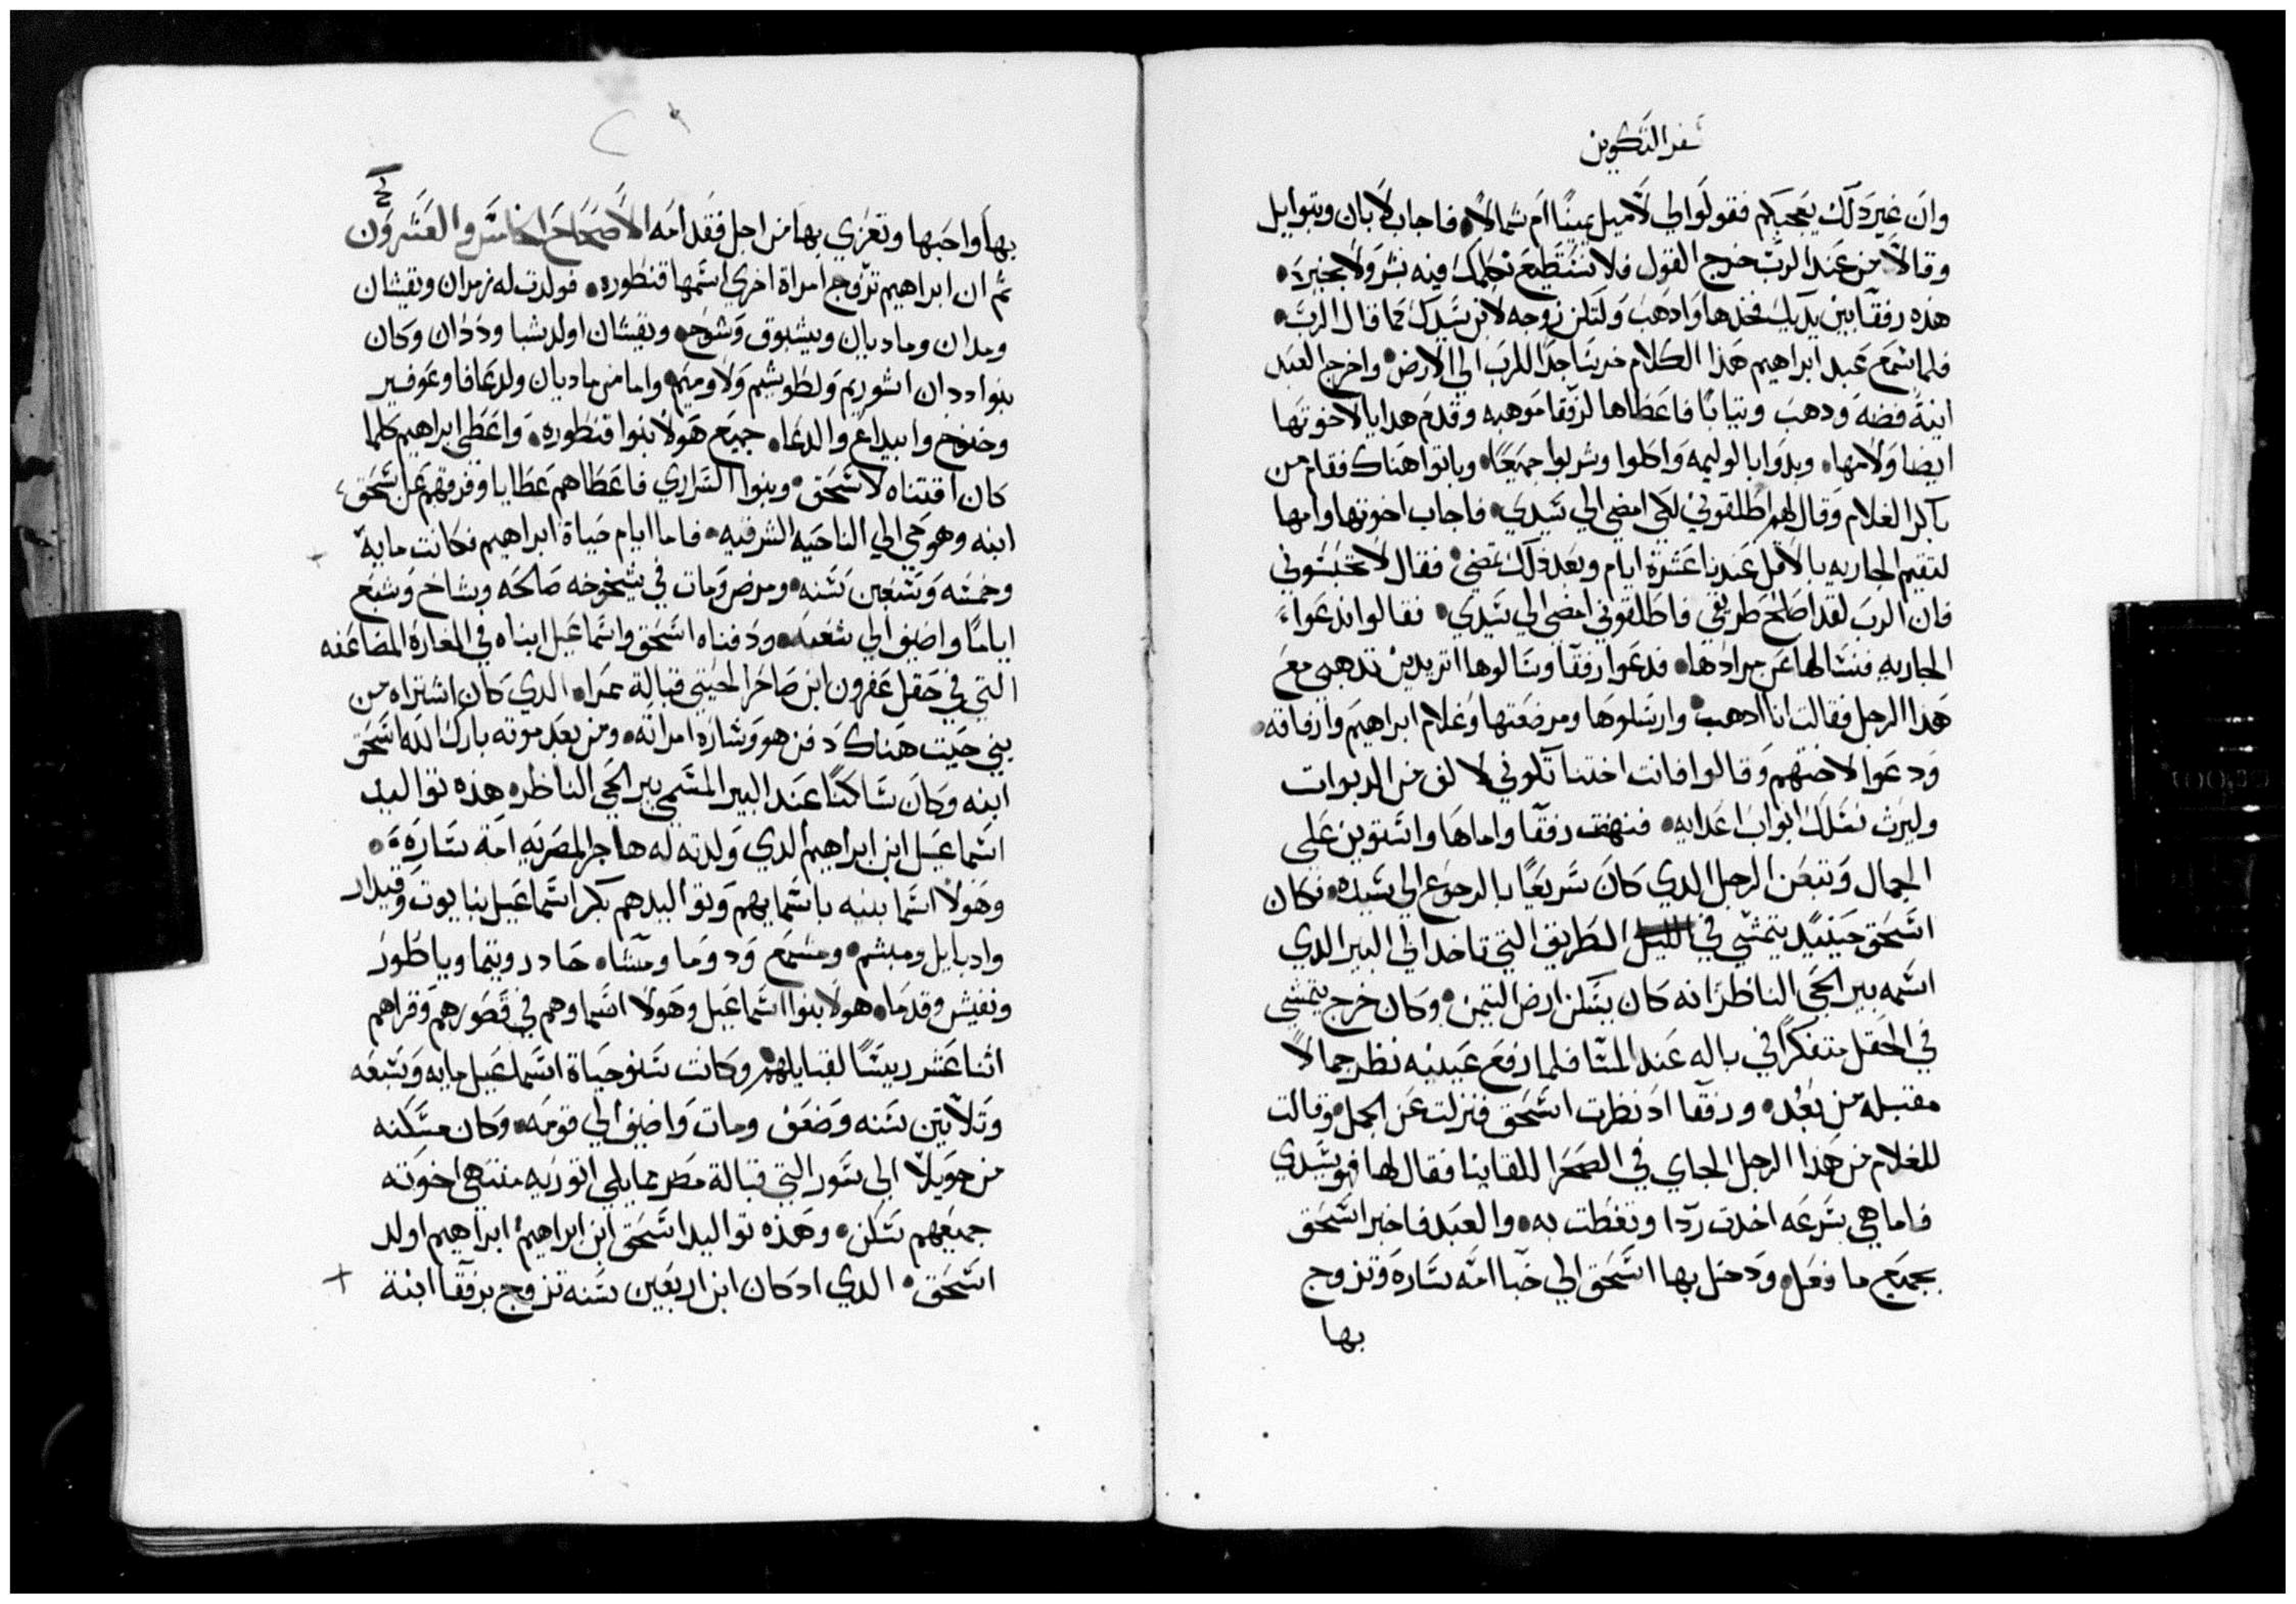 سفر التكوين
وان غير دلك يعجبكم فقولوا لي لاميل يمينًا ام شمالاً. فاجاب لابان وبتوايل
وقالا من عند الرب خرج القول فلا نستطيع نكلمك فيه بشر ولا بخير.
هذه رفقا بين يديك فخدها وادهب ولتكن زوجه لابن سيدك كما قال الرب.
فلما سمع عبد ابراهيم هذا الكلام خر ساجدًا للرب الي الارض. واخرج العبد
انية فضه ودهب وتيابًا فاعطاها لرفقا موهبه وقدم هدايا لاخوتها
ايضا ولامها. وبدوا بالوليمه واكلوا وشربوا جميعًا. وباتوا هناك فقام من
باكر الغلام وقال لهم اطلقوني لكي امضي الي سيدي. فاجاب اخوتها وامها
لتقيم الجاريه بالاقل عندنا عشرة ايام وبعد دلك تمضي. فقال لا تحبسوني
فان الرب لقد اصلح طريقي فاطلقوني امضي الي سيدي. فقالوا ندعوا
الجاريه فنسالها عن مرادها. فدعوا رفقا وسالوها اتريدين تدهبي مع
هذا الرجل فقالت انا ادهب. وارسلوها ومرضعتها وغلام ابراهيم وارفاقه.
ودعوا لاختهم وقالوا فانت اختنا تكوني لالف من الربوات
وليرث نسلك ابواب اعدايه. فنهضت رفقا واماها واستوين علي
الجمال وتبعن الرجل الدي كان سريعًا بالرجوع الي سيده. فكان
اسحق حينيد يتمشي في الطريق التي تاخد الي البير الدي
اسمه بير الحي الناظر انه كان يسكن ارض التيمن. وكان خرج يتمشي
في الحقل متفكرًا في باله عند المسا فلما رفع عينيه نظر جمالاً
مقبله من بعد. ورفقا اد نظرت اسحق فنزلت عن الجمل. وقالت
للغلام من هذا الرجل الجاي في الصحرا للقاينا فقال لها فهو سيدي
فاما هي بسرعه اخدت ردا وتغطت به. والعبد فاخبر اسحق
بجميع ما فعل. ودخل بها اسحق الي خبا امه ساره وتزوج
بها
بها واحبها وتعزي بها من اجل فقد امه الاصحاح الخامس والعشرون
تم ان ابراهيم تزوج امراة اخري اسمها قنطوره. فولدت له زمران ويقشان
ومدان وماديان ويشبوق وشوح. ويقشان اولد شبا وددان وكان
بنوا ددان اشوريم ولطوشيم ولاوميم. واما من ماديان ولد عافا وعوفير
وخنوخ وابيداع والدعا. جميع هولا بنوا قنطوره. واعطي ابراهيم كلما
كان اقتناه لاسحق. وبنوا السراري فاعطاهم عطايا وفرقهم عن اسحق
ابنه وهو حي الي الناحيه الشرقيه. فاما ايام حياة ابراهيم فكانت مايه
وخمسه وسبعين سنه. ومرض ومات في شيخوخه صالحه وشاخ وشبع
ايامًا واضيف الي شعبه. ودفناه اسحق واسماعيل ابناه في المغارة المضاعفه
التي في حقل عفرون ابن صاحر الحيتي قبالة ممرا. الدي كان اشتراه من
بني حيت هناك دفن هو وساره امراته. ومن بعد موته بارك الله اسحق
ابنه وكان ساكنًا عند البير المسمي بير الحي الناظر. هذه تواليد
اسماعيل ابن ابراهيم الدي ولدته له هاجر المصريه امة ساره.
وهولا اسما بنيه باسمايهم وتواليدهم بكر اسماعيل نبايوت وقيدار
وادبايل ومبسم. ومسمع ودوما ومسا. حادر وتيما وياطور
ونفيش وقدما. هولا بنوا اسماعيل وهولا اسماوهم في قصورهم وقراهم
اثنا عشر رييسًا لقبايلهم. وكانت سنو حياة اسماعيل مايه وسبعه
وتلاتين سنه وضعف ومات واضيف الي قومه. وكان مسكنه
من حويلا الي سور التي قبالة مصر مما يلي اتوريه منتهي اخوته
جميعهم سكن. وهذه تواليد اسحق ابن ابراهيم. ابراهيم اولد
اسحق. الدي اد كان ابن اربعين سنه تزوج برفقا ابنة